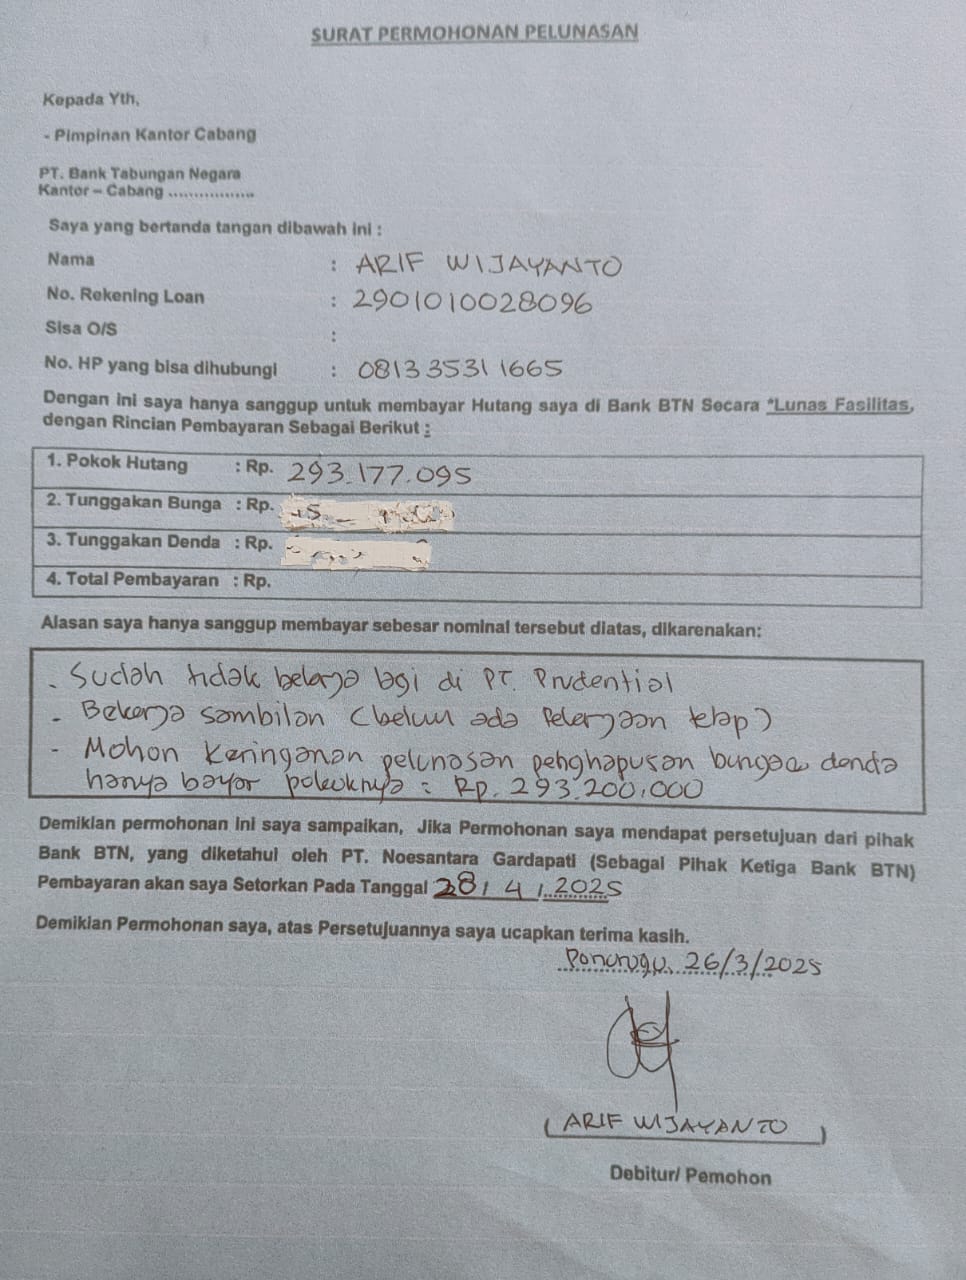 SURAT PERMOHONAN PELUNASAN
Kepada Yth,
- Pimpinan Kantor Cabang
PT. Bank Tabungan Negara
Kantor – Cabang .................
Saya yang bertanda tangan dibawah ini :
Nama : ARIF WIJAYANTO
No. Rekening Loan : 2901010028096
Sisa O/S :
No. HP yang bisa dihubungi : 081335311665
Dengan ini saya hanya sanggup untuk membayar Hutang saya di Bank BTN Secara *Lunas Fasilitas,
dengan Rincian Pembayaran Sebagai Berikut :
1. Pokok Hutang : Rp. 293.177.095
2. Tunggakan Bunga : Rp.
3. Tunggakan Denda : Rp.
4. Total Pembayaran : Rp.
Alasan saya hanya sanggup membayar sebesar nominal tersebut diatas, dikarenakan:
- Sudah tidak bekerja lagi di PT. Prudential
- Bekerja sambilan (belum ada pekerjaan tetap)
- Mohon keringanan pelunasan penghapusan bunga denda
hanya bayar pokoknya = Rp. 293.200.000
Demikian permohonan ini saya sampaikan, Jika Permohonan saya mendapat persetujuan dari pihak
Bank BTN, yang diketahui oleh PT. Noesantara Gardapati (Sebagai Pihak Ketiga Bank BTN)
Pembayaran akan saya Setorkan Pada Tanggal 28/4/2025
Demikian Permohonan saya, atas Persetujuannya saya ucapkan terima kasih.
Ponorogo, 26/3/2025
(ARIF WIJAYANTO)
Debitur/ Pemohon